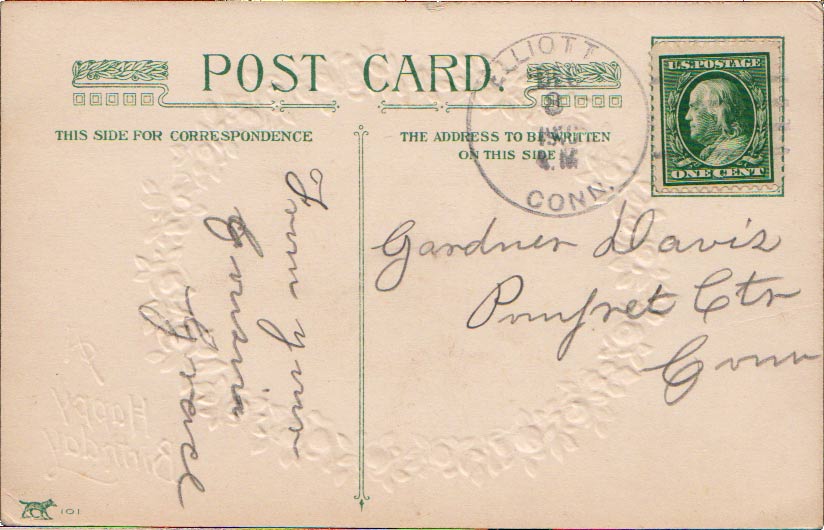 POST CARD.
THIS SIDE FOR CORRESPONDENCE
THE ADDRESS TO BE WRITTEN
ON THIS SIDE
ELLIOTT
DEC
CONN.
U.S. POSTAGE
ONE CENT
From your
Cousin
Grace
Gardner Davis
Pomfret Ctr
Conn
A
Happy
Birthday
101